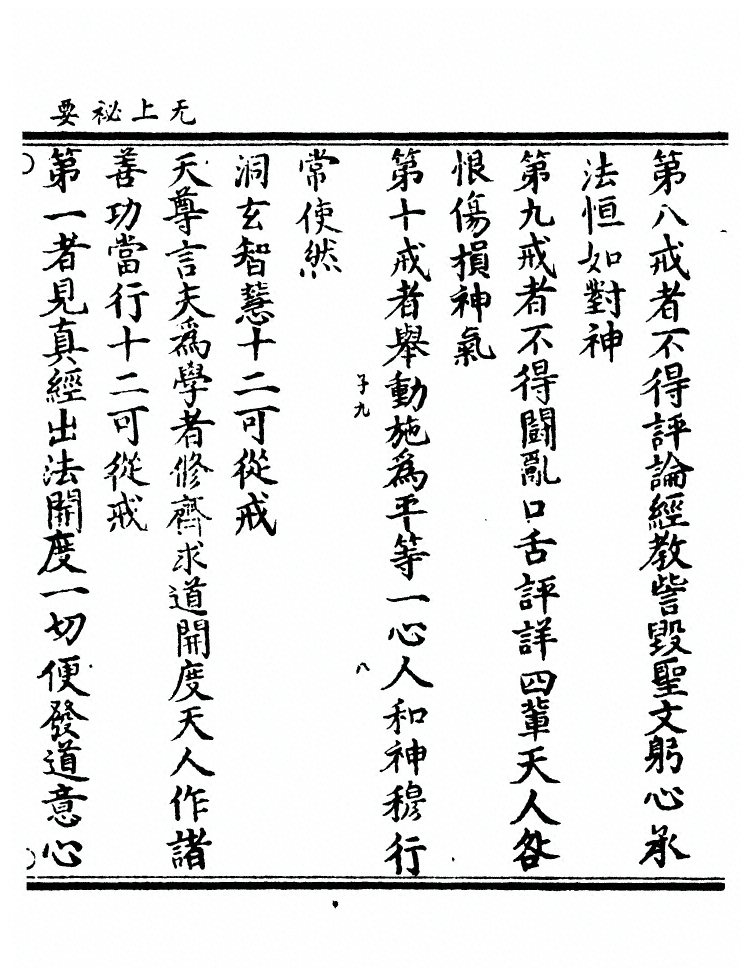 无上祕要
第八戒者不得評論經教訾毀聖文躬心承
法恒如對神
第九戒者不得鬪亂口舌評詳四輩天人咎
恨傷損神氣
第十戒者舉動施為平等一心人和神穆行
常使然
子九
八
洞玄智慧十二可從戒
天尊言夫為學者修齋求道開度天人作諸
善功當行十二可從戒
第一者見真經出法開度一切便發道意心